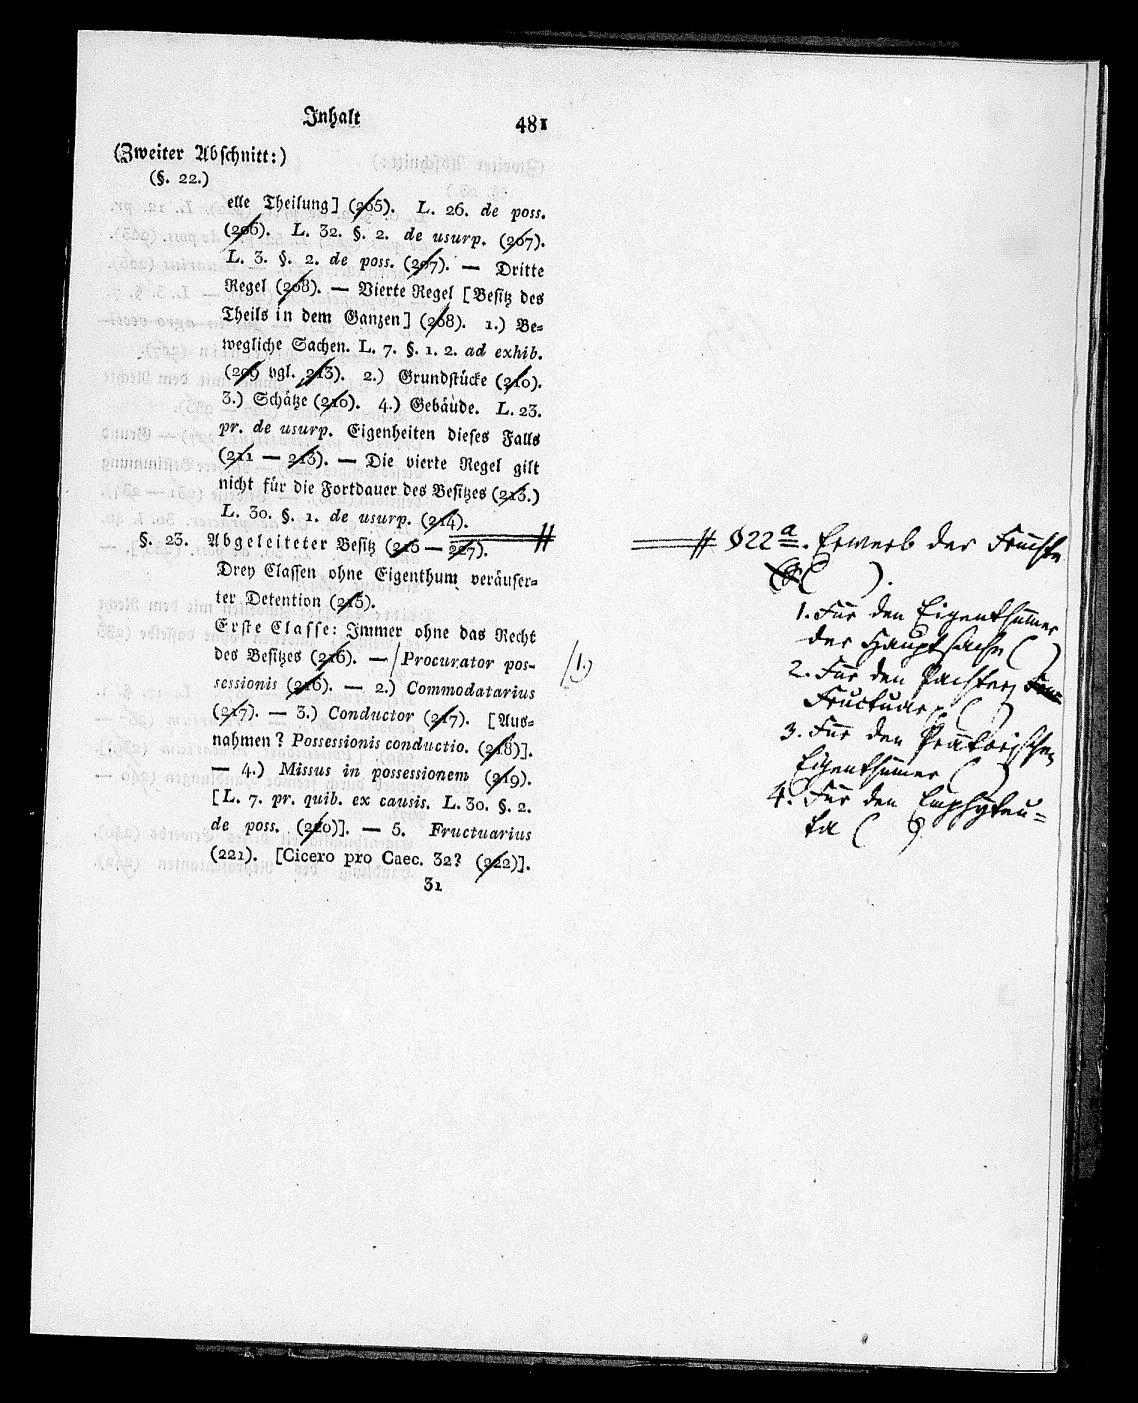 Inhalt 481
(Zweiter Abschnitt:)
(§. 22.)
elle Theilung] (205). L. 26. de poss.
(206). L. 32. §. 2. de usurp. (207).
L. 3. §. 2. de poss. (207). — Dritte
Regel (208). — Vierte Regel [Besitz des
Theils in dem Ganzen] (208). 1.) Be-
wegliche Sachen. L. 7. §. 1. 2. ad exhib.
(209 vgl. 213). 2.) Grundstücke (210).
3.) Schätze (210). 4.) Gebäude. L. 23.
pr. de usurp. Eigenheiten dieses Falls
(211 — 213). — Die vierte Regel gilt
nicht für die Fortdauer des Besitzes (213.)
L. 30. §. 1. de usurp. (214).
§. 23. Abgeleiteter Besitz (215 — 227).
Drey Classen ohne Eigenthum veräuser-
ter Detention (215).
Erste Classe: Immer ohne das Recht
des Besitzes (216). — Procurator pos-
sessionis (216). — 2.) Commodatarius
(217). — 3.) Conductor (217). [Aus-
nahmen? Possessionis conductio. (218)].
— 4.) Missus in possessionem (219).
[L. 7. pr. quib. ex causis. L. 30. §. 2.
de poss. (220)]. — 5. Fructuarius
(221). [Cicero pro Caec. 32? (222)].
31
1.)
§22 a. Erwerb der Früchte
( ).
1. Für den Eigenthümer
der Hauptsache ( )
2. Für den Pachter
Fructuar ( )
3. Für den Prätorischen
Eigenthümer ( )
4. Für den Emphyteu=
ta ( )